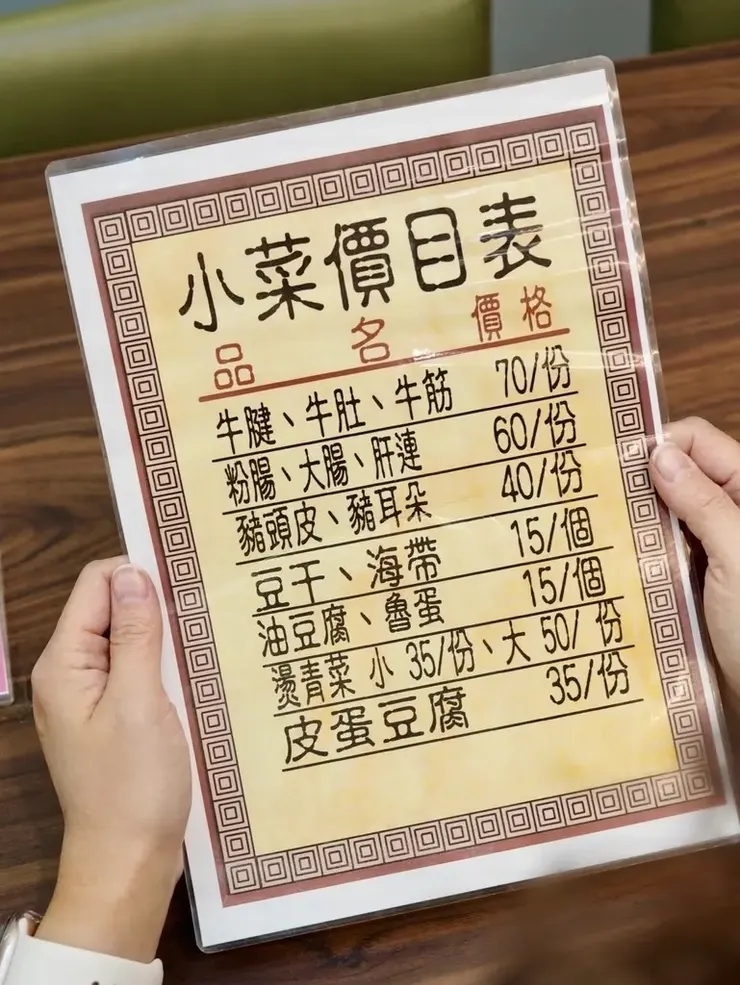 小菜價目表
品 名 價格
牛腱、牛肚、牛筋 70/份
粉腸、大腸、肝連 60/份
豬頭皮、豬耳朵 40/份
豆干、海帶 15/個
油豆腐、魯蛋 15/個
燙青菜 小 35/份、大 50/ 份
皮蛋豆腐 35/份